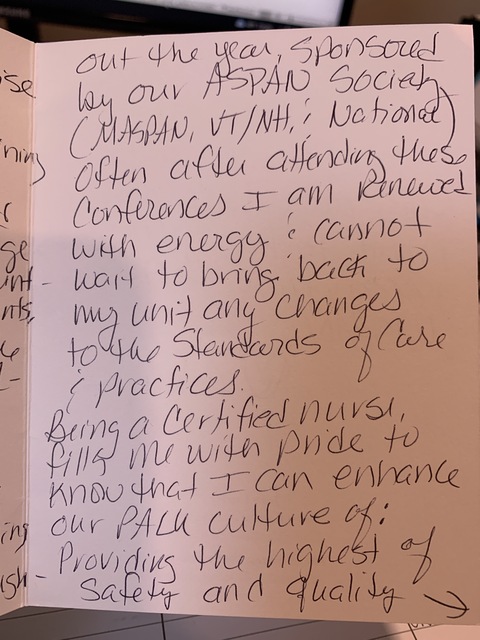 out the year, sponsored
by our ASPAN Society
(MASPAN, VT/NH, & National)
Often after attending these
Conferences I am Renewed
with energy & cannot
wait to bring back to
my unit any changes
to the Standards of Care
& practices.
Being a Certified nurse,
fills me with pride to
know that I can enhance
our PACU culture of:
- Providing the highest of
Safety and Quality →